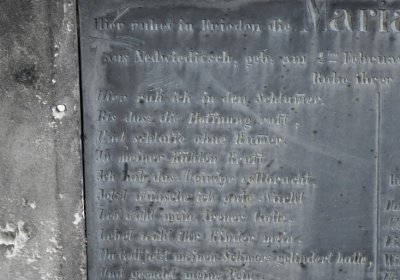 Hier ruhet in Frieden die Maria
aus Nedwieditsch, geb: am 2ten Februar
Ruhe ihrer
Hier ruh ich in den Schlumer.
Bis dasz die Hoffnung ruft,
Und schlaffe ohne Kumer.
In meiner kühlen Gruft
Ich hab das Leidge vollbracht,
Jetzt wünsche ich gute Nacht
Leb wohl mein treuer Gatte.
Lebet wohl ihr Kinder mein.
Ihr habt jetzt meinen Schmerz gelindert hatte,
Und geendet meine Pein.